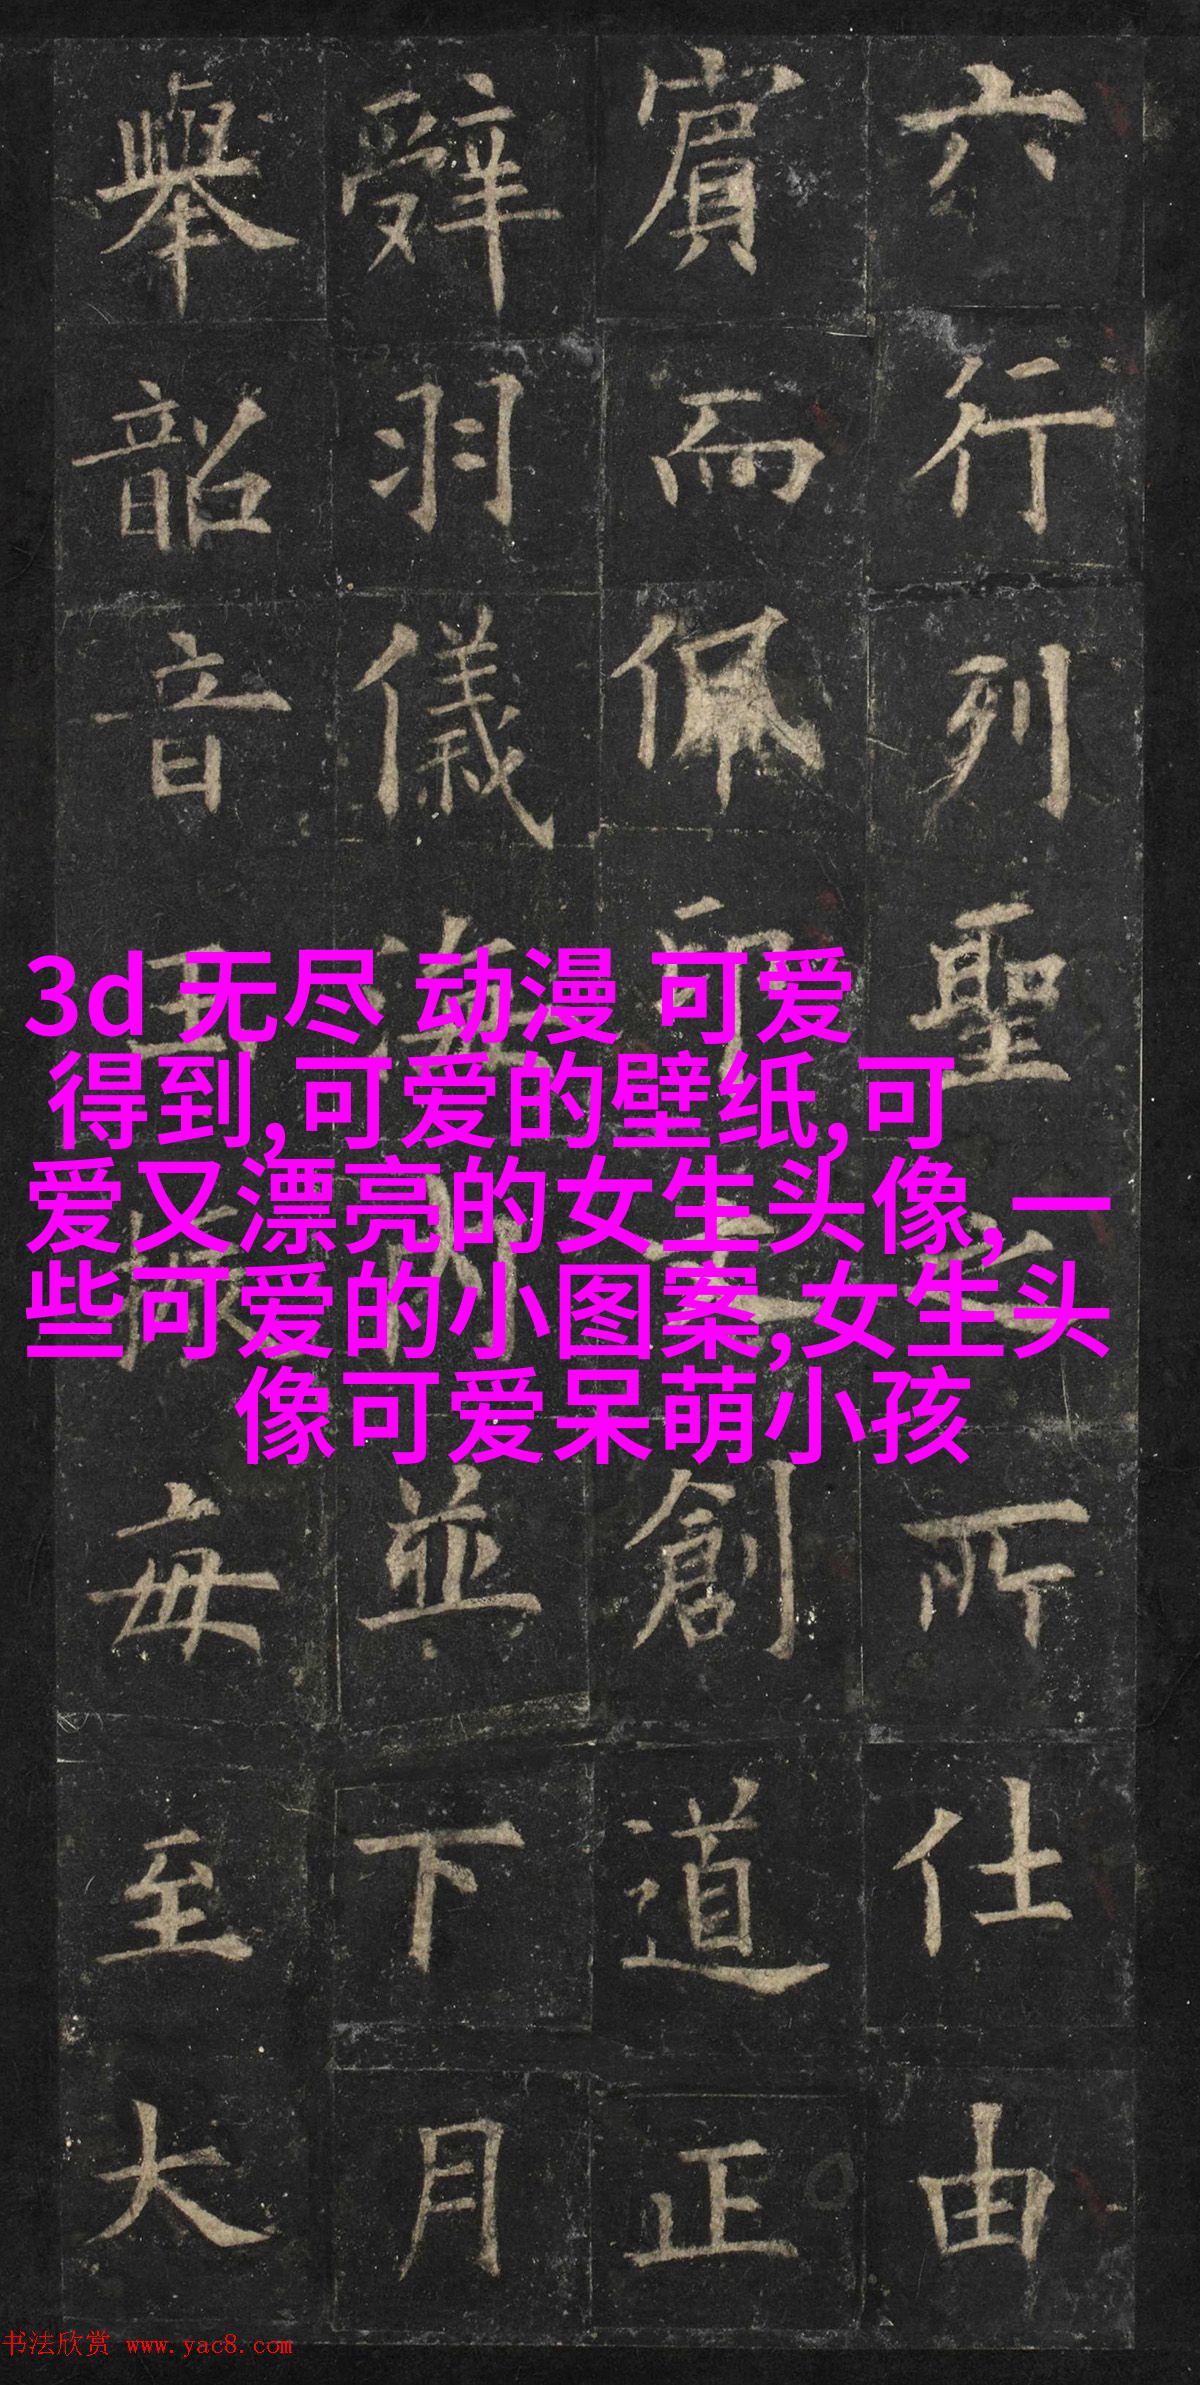 六行列聖之所仕由
賓而佩創道正
辤羽儀海内並下月
舉韶音振每至大
3d 无尽 动漫 可爱
得到,可爱的壁纸,可
爱又漂亮的女生头像,一
些可爱的小图案,女生头
像可爱呆萌小孩
书法欣赏 www.yac8.com